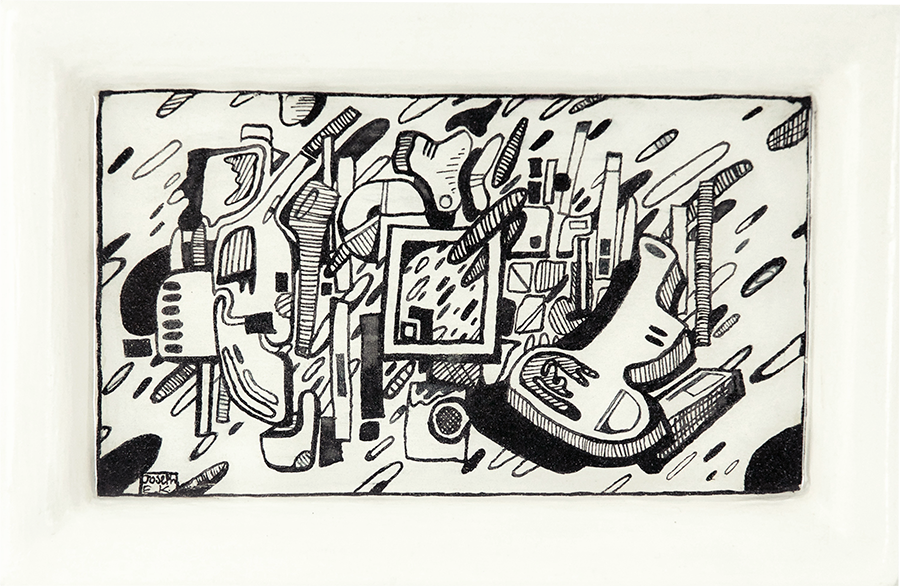 Joseph
E K